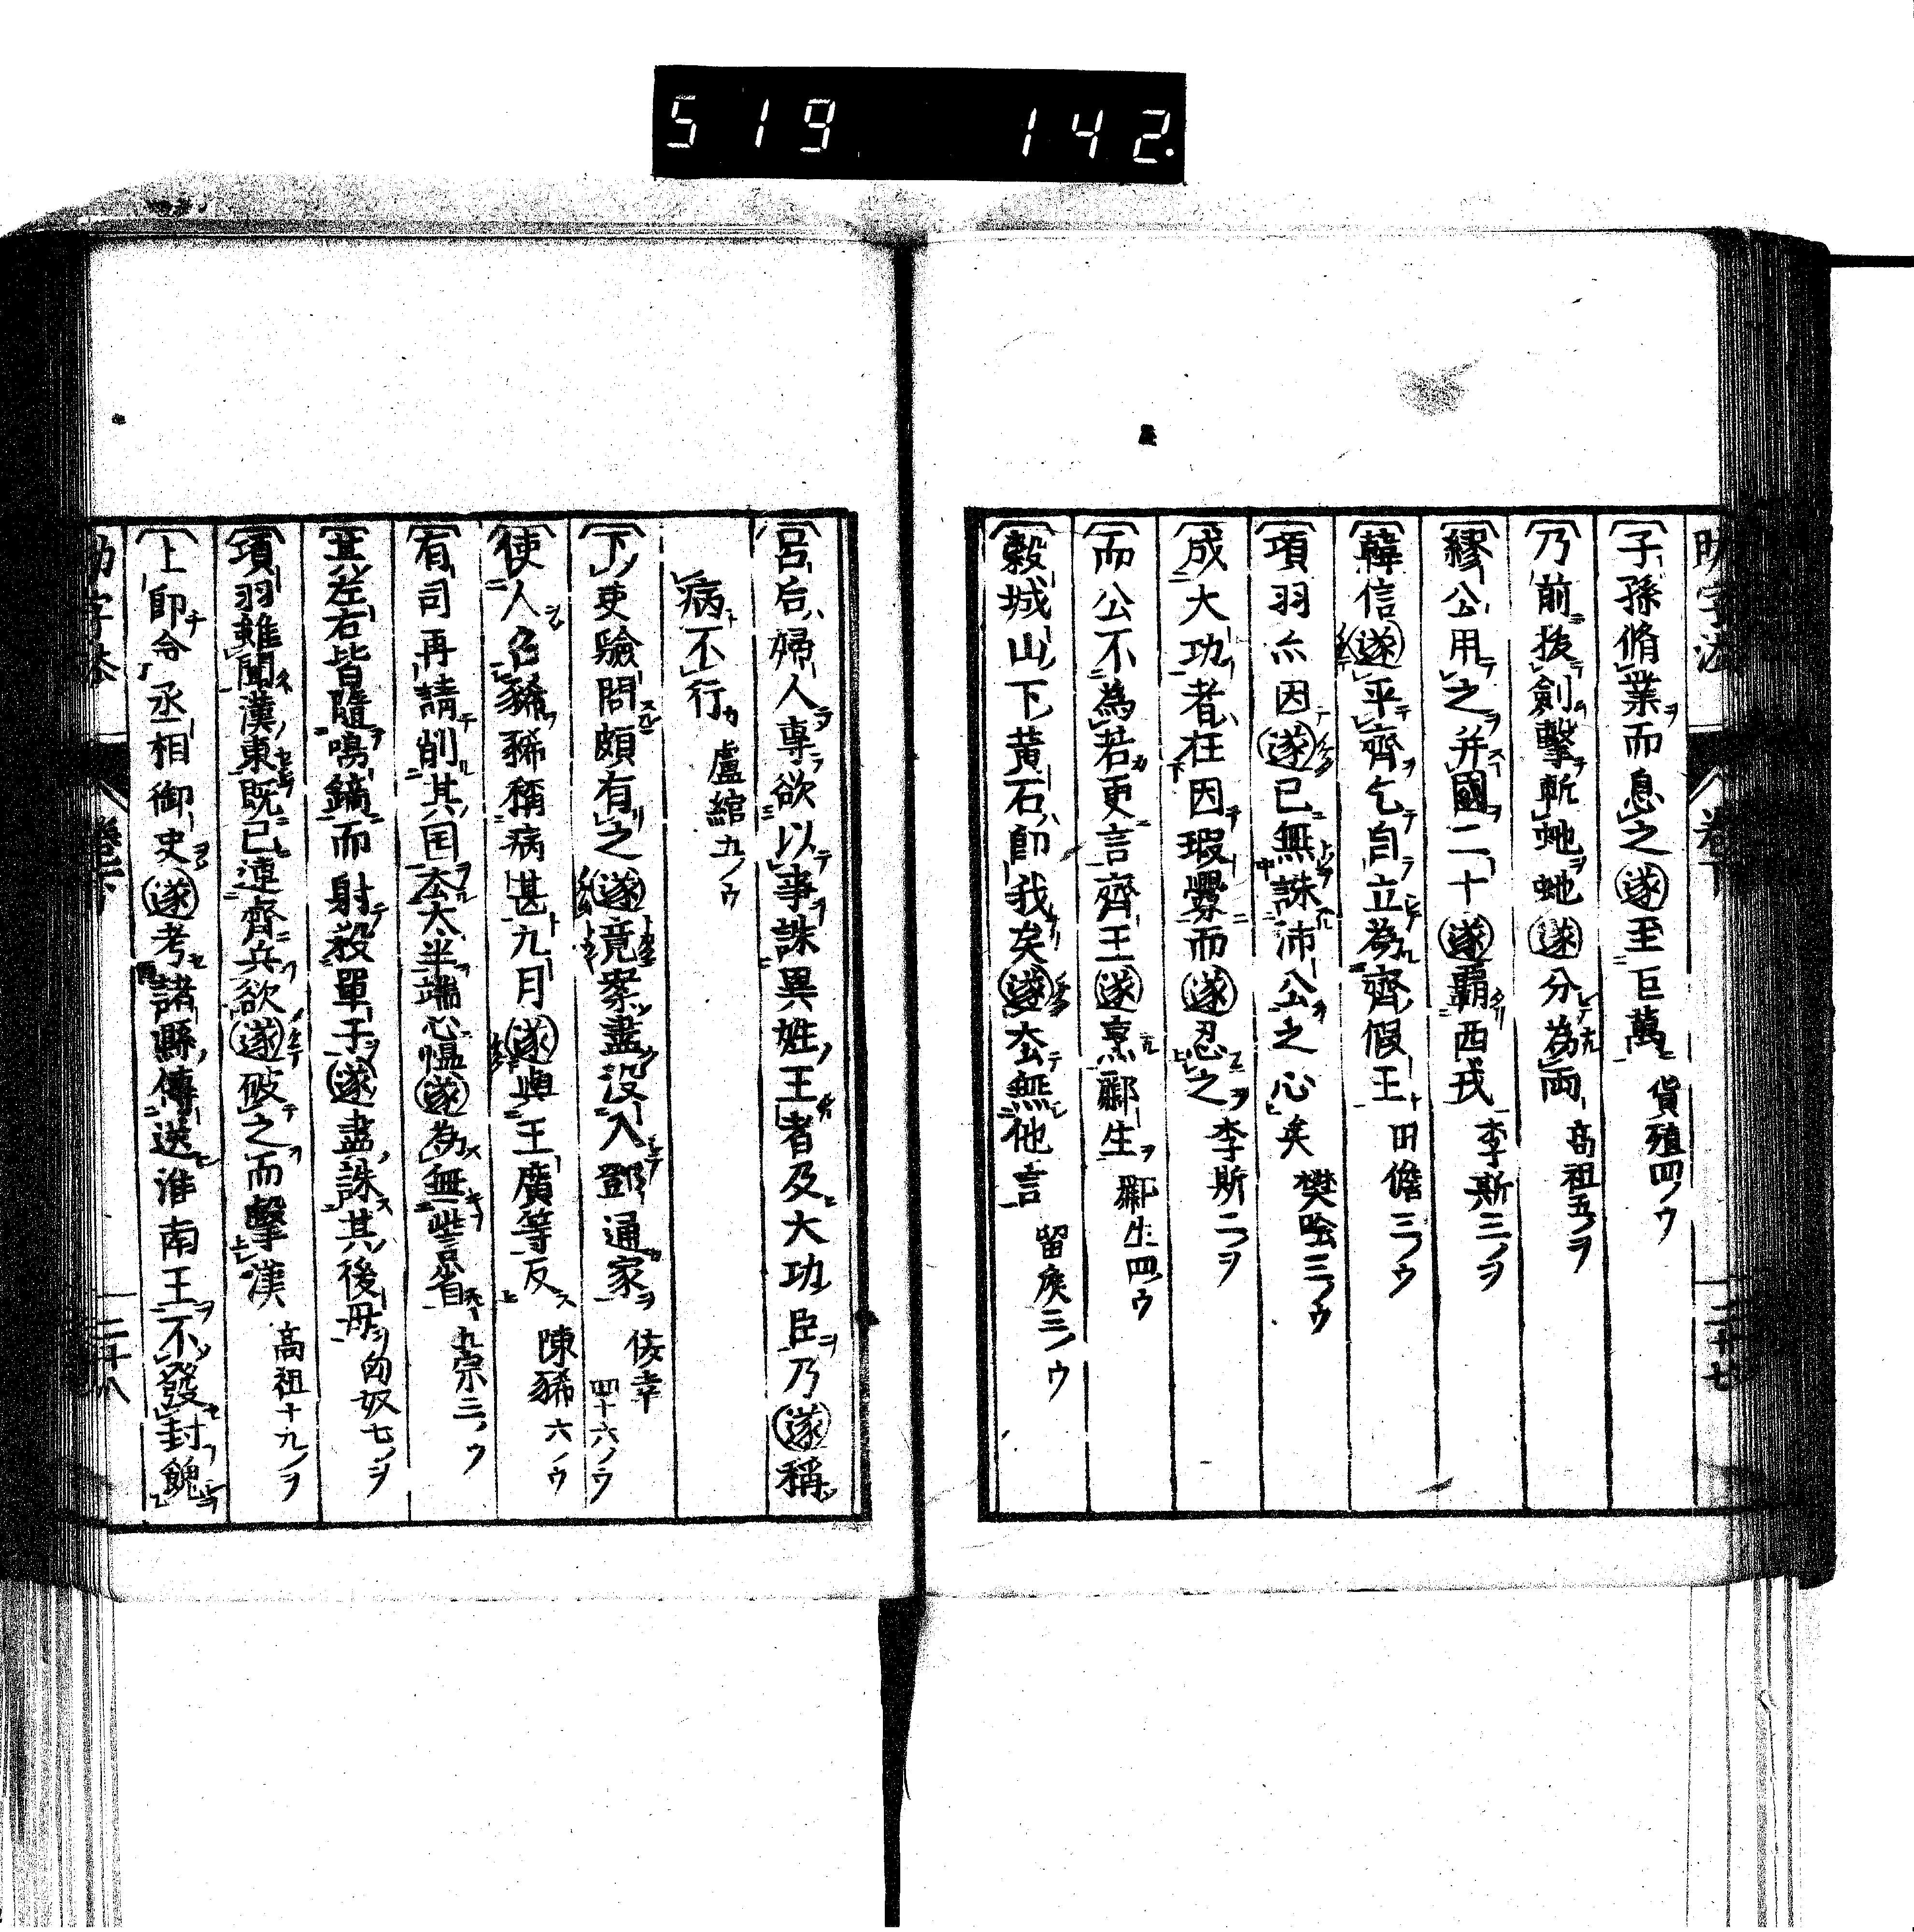 519 142.
子孫脩業而息之遂至巨萬 貨殖四ノウ
乃前拔劍擊斬虵虵遂分為兩 高祖五ノヲ
繆公用之并國二十遂霸西戎 李斯三ノヲ
韓信遂平齊乞自立為齊假王 田儋三ノウ
項羽亦因遂已無誅沛公之心矣 樊噲三ノウ
成大功者在因瑕釁而遂忍之 李斯二ノヲ
而公不為若更言齊王遂烹酈生 酈生四ノウ
穀城山下黃石即我矣遂去無他言 留侯三ノウ
呂后婦人專欲以事誅異姓王者及大功臣乃遂稱
病不行 盧綰九ノウ
下吏驗問頗有之遂竟案盡沒入鄧通家 佞幸四十六ノウ
使人召豨豨稱病甚九月遂與王廣等反 陳豨六ノウ
有司再請削其国去太半端心慍遂為無訾省 五宗三ノウ
其左右皆隨鳴鏑而射殺單于遂盡誅其後母 匈奴七ノヲ
項羽雖聞漢東既已連齊兵欲遂破之而擊漢 高祖十九ノヲ
上即令丞相御史遂考諸縣傳送淮南王不發封餽